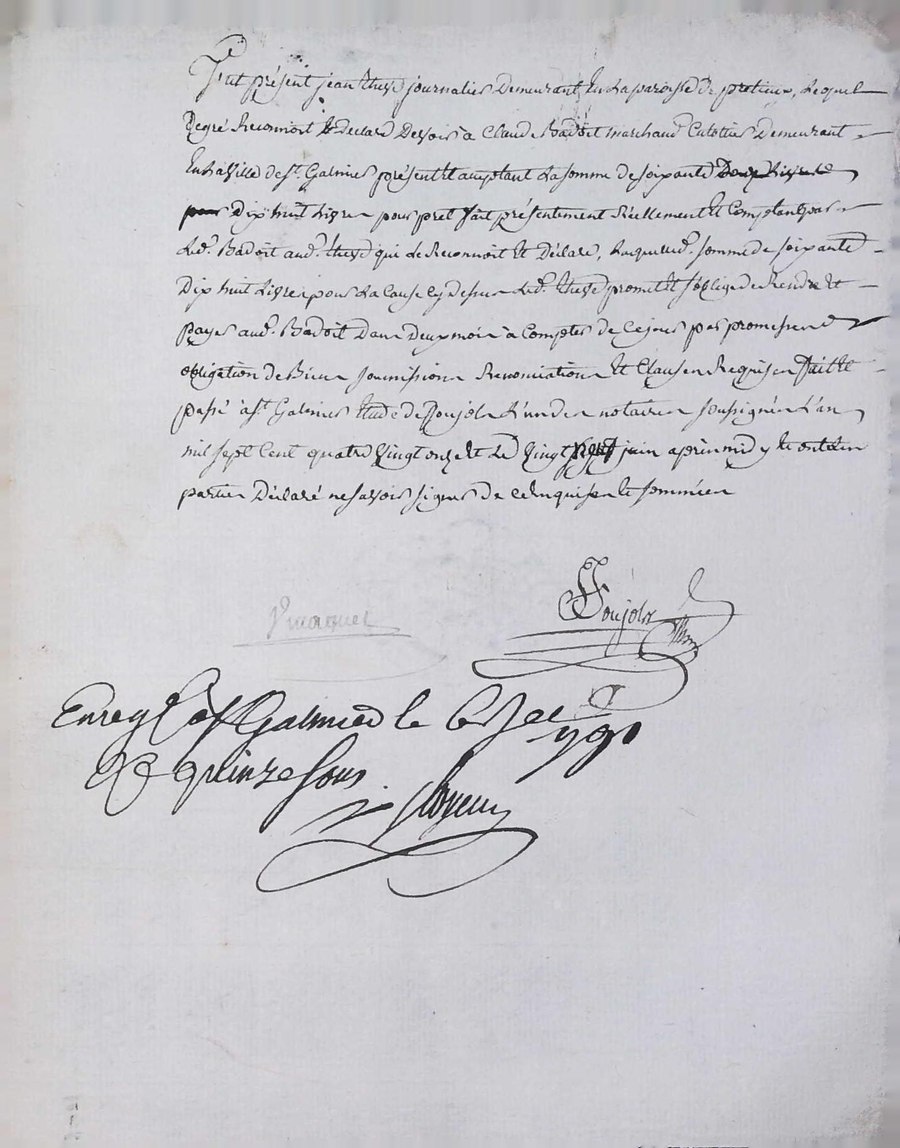 fut présent jean theve journalier Demeurant En la paroisse de Lequel
De gré Reconnoit Et Declare Devoir à Claude Badoit marchand Culotier Demeurant
En la Ville de St. Galmier présent Et acceptant La somme de soixante
Dix huit Livres pour pret fait présentement Réellement Et Comptant par
Led. Badoit aud. theve qui Le Reconnoit Et Déclare, Laquelle d. somme de soixante
Dix huit Livres pour La Cause Cy dessus Led. theve promet Et s'oblige de Rendre Et
payer aud. Badoit Dans Deux mois à Compter de Ce jour par promesse
obligation de Biens soumissions Renonciations Et Clauses Requises fait Et
passé à St. Galmier Etude de Poujols L'un des notaires soussignés L'an
mil sept Cent quatre Vingt onze Et Le Vingt juin après midy Et ont Les
parties Déclaré ne savoir signer de Ce Enquises Et sommées
Poujols
Enreg. à St Galmier le
quinze sous